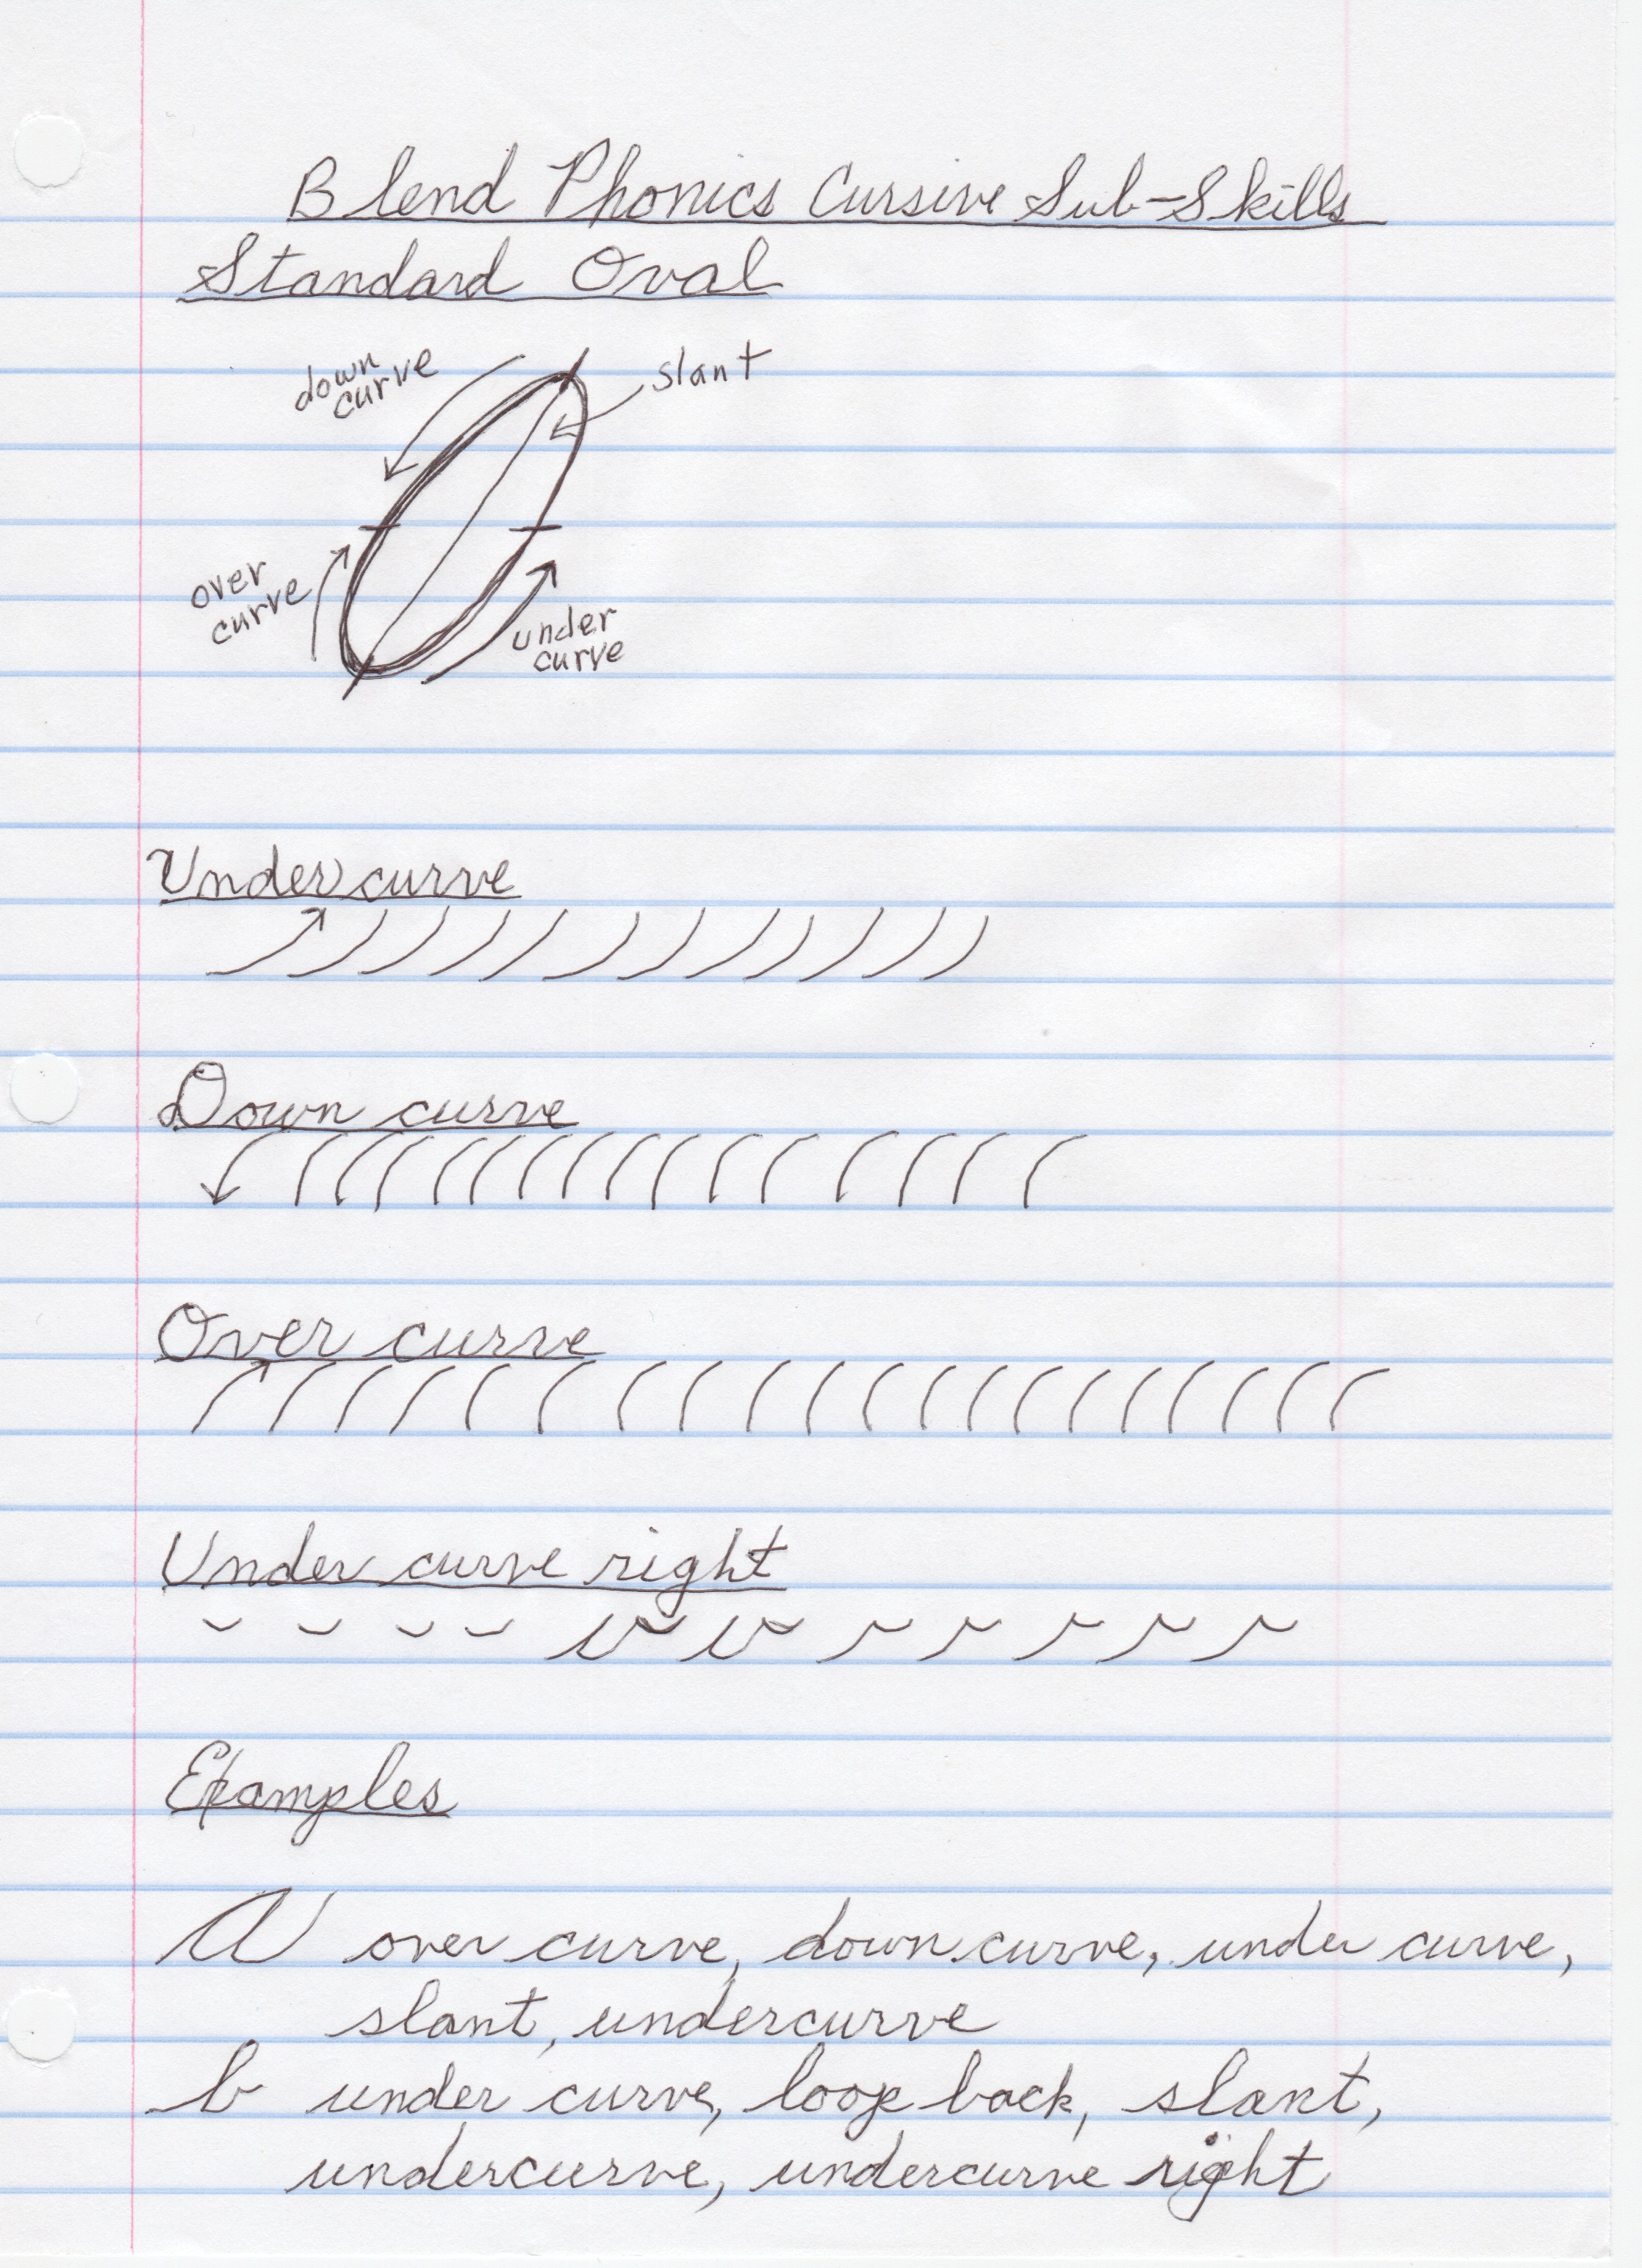 Blend Phonics Cursive Sub-Skills
Standard Oval
down
curve
slant
over
curve
under
curve
Under curve
Down curve
Over curve
Under curve right
Examples
a over curve, down curve, under curve,
slant, undercurve
b under curve, loop back, slant,
undercurve, undercurve right